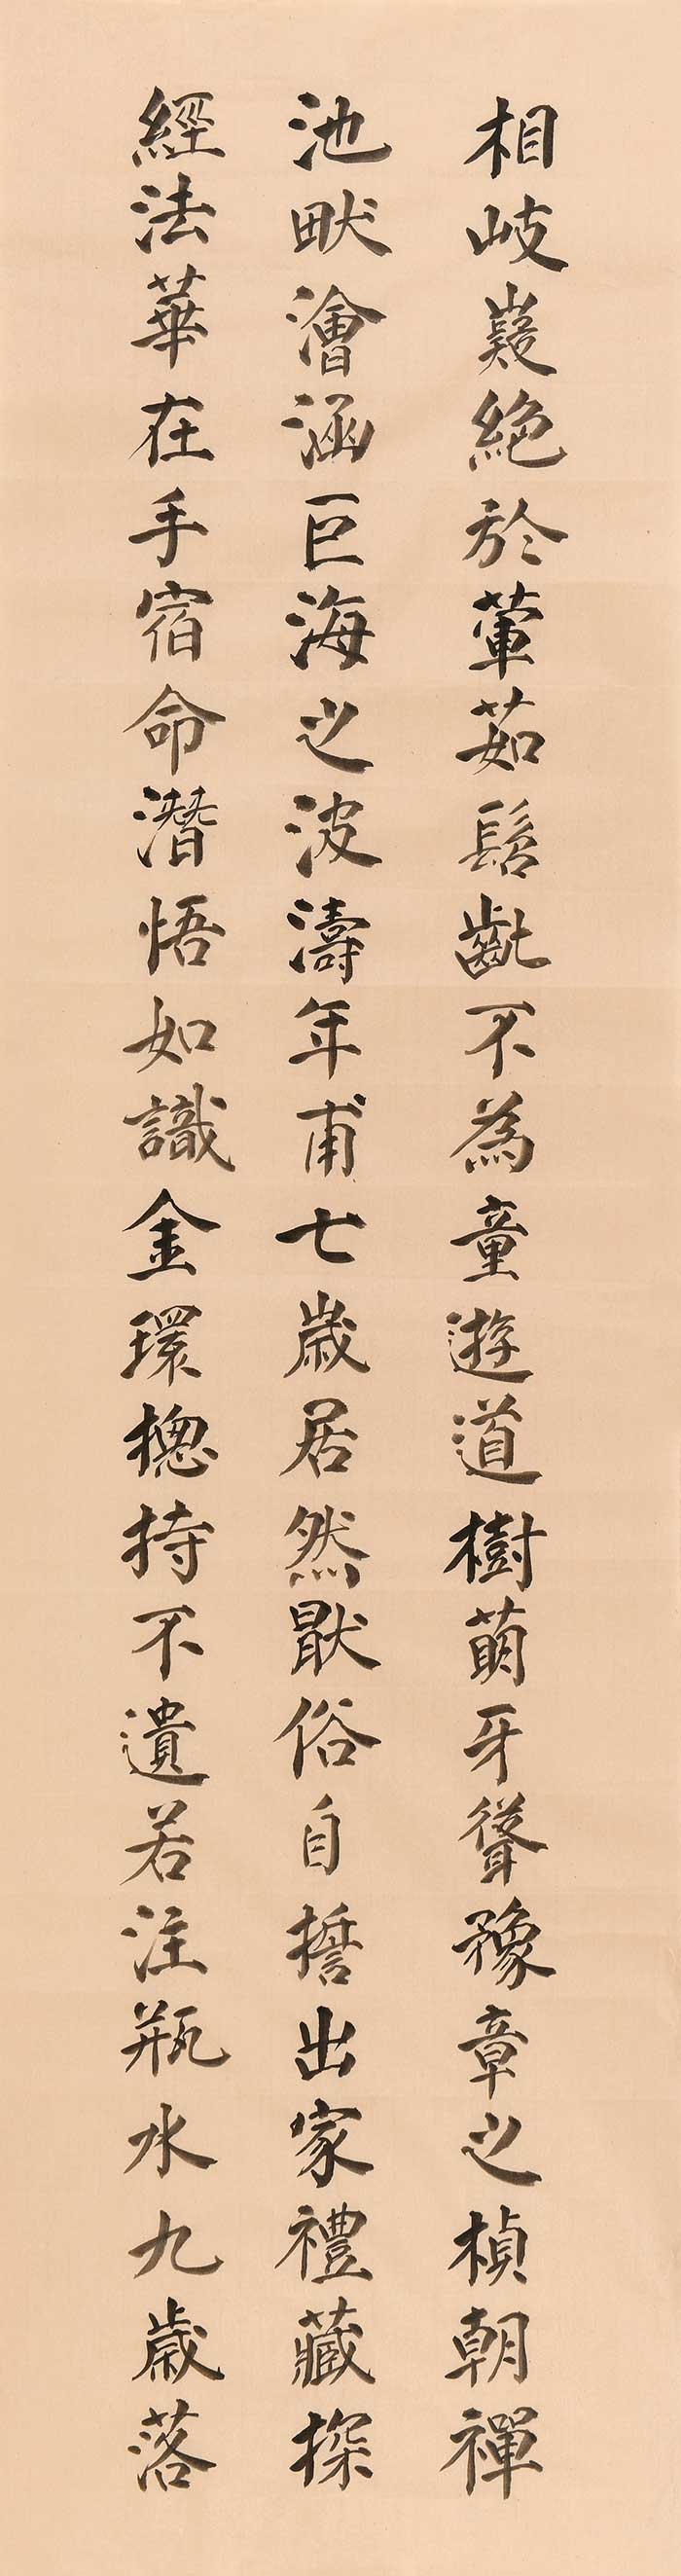 相岐嶷絕於葷茹髫齔不為童遊道樹萌牙聳豫章之楨朝禪
池畎澮涵巨海之波濤年甫七歲居然猒俗自擔出家禮藏探
經法華在手宿命潛悟如識金環摠持不遺若注瓶水九歲落